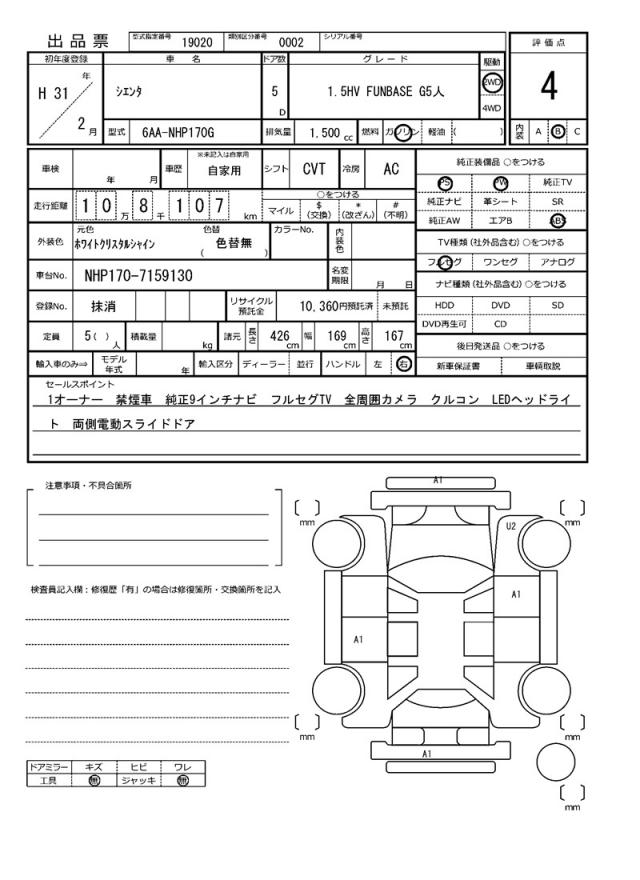 出品票
型式指定番号 19020 類別区分番号 0002 シリアル番号
初年度登録 車名 ドア数 グレード 駆動 評価点
H 31 年 2 月 シエンタ 5 D 1.5HV FUNBASE G5人 2WD 4WD 4
型式 6AA-NHP170G 排気量 1.500 cc 燃料 ガソリン 軽油 ( ) 内装 A B C
車検 年 月 車歴 ※未記入は自家用 自家用 シフト CVT 冷房 AC
走行距離 1 0 万 8 千 1 0 7 km
○をつける
マイル $ (交換) * (改ざん) # (不明)
外装色 元色 ホワイトクリスタルシャイン 色替 ( 色替無 ) カラーNo. 内装色
車台No. NHP170-7159130 名変期限 月 日
登録No. 抹消 リサイクル預託金 10,360円預託済 未預託
定員 5( ) 人 積載量 kg 諸元 長さ 426 cm 幅 169 cm 高さ 167 cm
輸入車のみ⇒ モデル年式 年 輸入区分 ディーラー 並行 ハンドル 左 右
純正装備品 ○をつける
PS PW 純正TV
純正ナビ 革シート SR
純正AW エアB ABS
TV種類 (社外品含む) ○をつける
フルセグ ワンセグ アナログ
ナビ種類 (社外品含む) ○をつける
HDD DVD SD
DVD再生可 CD
後日発送品 ○をつける
新車保証書 車輌取説
セールスポイント
1オーナー 禁煙車 純正9インチナビ フルセグTV 全周囲カメラ クルコン LEDヘッドライ
ト 両側電動スライドドア
注意事項・不具合箇所
検査員記入欄：修復歴「有」の場合は修復箇所・交換箇所を記入
ドアミラー キズ ヒビ ワレ
工具 無 ジャッキ 無
A1
mm
mm
U2
A1
A1
mm
mm
A1
mm